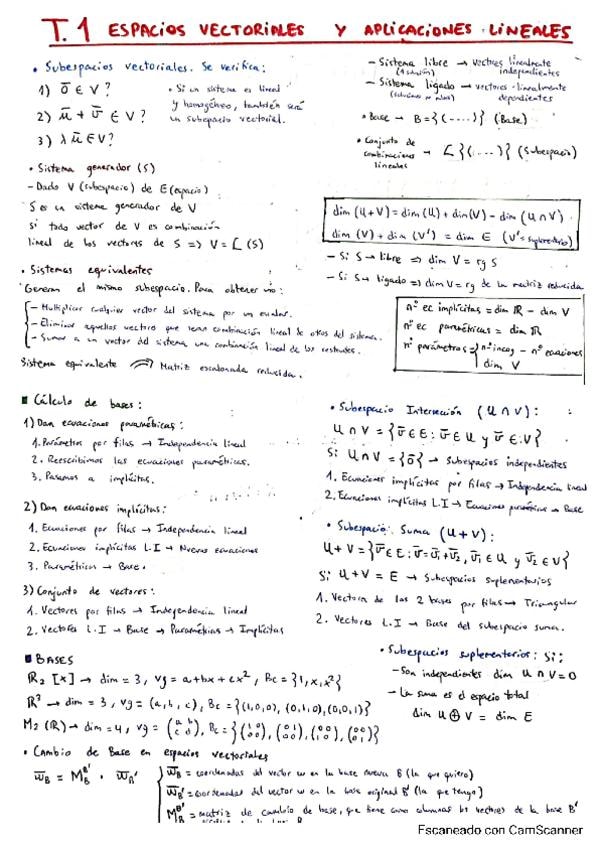 T.1 ESPACIOS VECTORIALES Y APLICACIONES LINEALES
• Subespacios vectoriales. Se verifica:
1) ō ∈ V?
2) ū + v̄ ∈ V?
3) λ ū ∈ V?
• Si un sistema es lineal
y homogéneo, también será
un subespacio vectorial.
• Sistema generador (S)
- Dado V (subespacio) de E (espacio)
S es un sistema generador de V
si todo vector de V es combinación
lineal de los vectores de S => V = L (S)
• Sistemas equivalentes
Generan el mismo subespacio. Para obtener uno:
- Multiplicar cualquier vector del sistema por un escalar.
- Eliminar aquellos vectores que sean combinación lineal de otros del sistema.
- Sumar a un vector del sistema una combinación lineal de los restantes.
Sistema equivalente → Matriz escalonada reducida.
- Sistema libre → vectores linealmente
(1 solución) independientes
- Sistema ligado → vectores linealmente
dependientes
• Base → B = {(....)} (Base)
• Conjunto de
combinaciones → L {(....)} (Subespacio)
lineales
dim (U+V) = dim (U) + dim (V) - dim (U ∩ V)
dim (V) + dim (V') = dim E (V' = suplementario)
- Si S → libre => dim V = rg S
- Si S → ligado => dim V = rg de la matriz reducida
nº ec implícitas = dim ℝ - dim V
nº ec paramétricas = dim ℝ
nº parámetros = { nº incog - nº ecuaciones
dim V
■ Cálculo de bases:
1) Dan ecuaciones paramétricas:
1. Parámetros por filas → Independencia lineal
2. Reescribimos las ecuaciones paramétricas.
3. Pasamos a implícitas.
2) Dan ecuaciones implícitas:
1. Ecuaciones por filas → Independencia lineal
2. Ecuaciones implícitas L.I → Nuevas ecuaciones
3. Paramétricas → Base.
3) Conjunto de vectores:
1. Vectores por filas → Independencia lineal
2. Vectores L.I → Base → Paramétricas → Implícitas
• Subespacio Intersección (U ∩ V):
U ∩ V = {v̄ ∈ E : v̄ ∈ U y v̄ ∈ V}
Si U ∩ V = {ō} → Subespacios independientes
1. Ecuaciones implícitas por filas → Independencia lineal
2. Ecuaciones implícitas L.I → Ecuaciones paramétricas → Base
• Subespacio Suma (U + V):
U + V = {v̄ ∈ E : v̄ = v̄₁ + v̄₂, v̄₁ ∈ U y v̄₂ ∈ V}
Si U + V = E → Subespacios suplementarios
1. Vectores de las 2 bases por filas → Triangular
2. Vectores L.I → Base del subespacio suma.
• Subespacios suplementarios: Si:
- Son independientes dim U ∩ V = 0
- La suma es el espacio total
dim U ⊕ V = dim E
■ BASES
ℝ₂ [x] → dim = 3, vg = a + bx + cx², Bc = {1, x, x²}
ℝ³ → dim = 3, vg = (a, b, c), Bc = {(1,0,0), (0,1,0), (0,0,1)}
M₂ (ℝ) → dim = 4, vg = (a b / c d), Bc = {(1 0 / 0 0), (0 1 / 0 0), (0 0 / 1 0), (0 0 / 0 1)}
• Cambio de Base en espacios vectoriales
w̄_B = M_B^B' · w̄_B'
w̄_B = coordenadas del vector w en la base nueva B (la que quiero)
w̄_B' = coordenadas del vector w en la base original B' (la que tengo)
M_B^B' = matriz de cambio de base, que tiene como columnas los vectores de la base B'
Escaneado con CamScanner